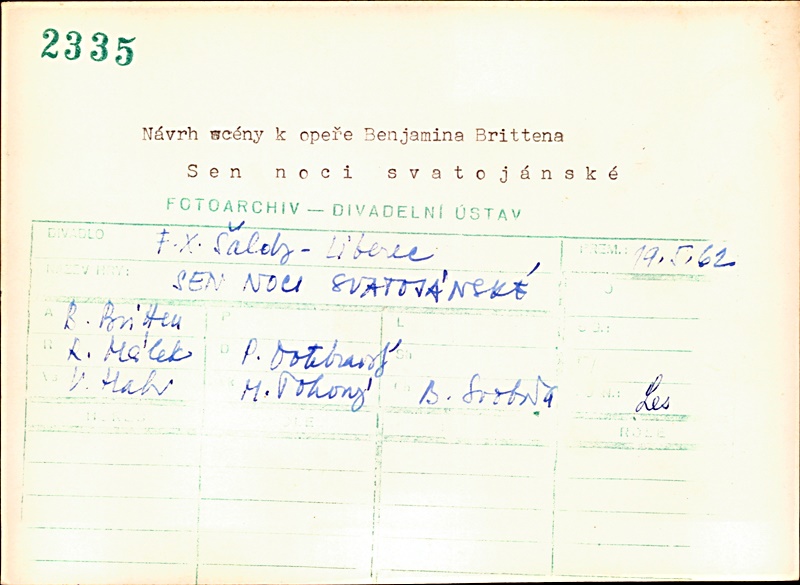 2335
Návrh scény k opeře Benjamina Brittena
Sen noci svatojánské
FOTOARCHIV — DIVADELNÍ ÚSTAV
DIVADLO F. X. Šaldy - Liberec PREM.: 19. 5. 62
NÁZEV HRY: SEN NOCI SVATOJÁNSKÉ
A B. Britten P L
R R. Málek D P.
V. M. Pokorný B. Svoboda Les
ROLE